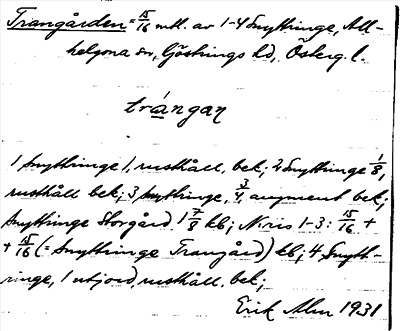 Trangården = 15/16 mtl. av 1-4 Snyttringe, All-
helgona sn, Göstrings hd, Österg. l.
trángan
1 Snyttringe 1, rusthåll, bek; 2 Snyttringe 1/8,
rusthåll bek; 3 Snyttringe, 3/4, augment bek;
Snyttringe Storgård 1 7/8 kb; N:ris 1-3: 15/16 +
+ 15/16 (= Snyttringe Trangård) kb; 4 Snytt-
ringe, 1 utjord, rusthåll, bek;
Erik Alm 1931